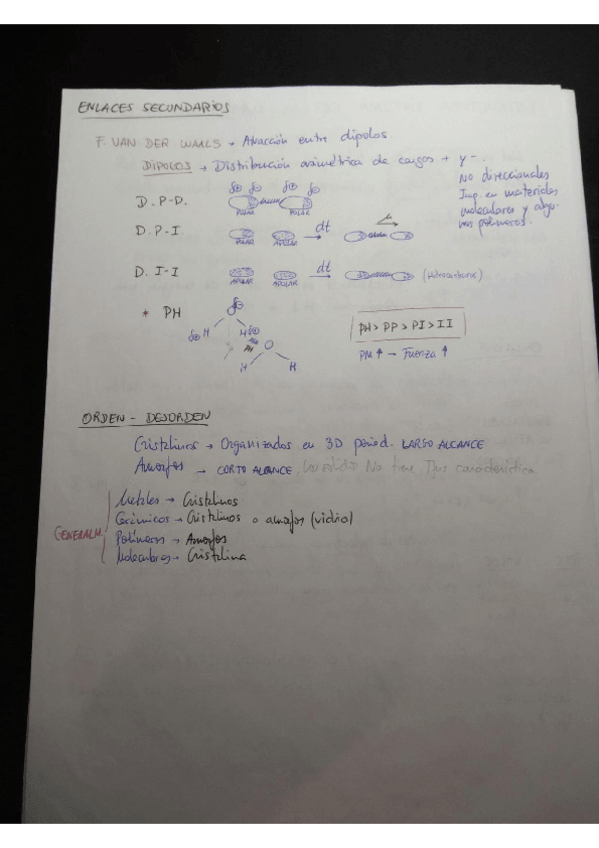 ENLACES SECUNDARIOS
F. VAN DER WAALS → Atracción entre dipolos
DIPOLOS → Distribución asimétrica de cargas + y -.
No direccionales
Imp. en materiales
moleculares y algu-
nos polímeros.
D. P-D. δ⊕ δ⊖ δ⊕ δ⊖
POLAR POLAR
D. P-I dt
POLAR APOLAR
D. I-I dt (Hidrocarburos)
APOLAR APOLAR
* PH
δ⊕ H H δ⊕
PH O
H H
PH > PP > PI > II
PM ↑ → Fuerza ↑
ORDEN - DESORDEN
Cristalinos → Organizados en 3D period. LARGO ALCANCE
Amorfos → CORTO ALCANCE, No tiene característica
GENERALM.
Metales → Cristalinos
Cerámicos → Cristalinos o amorfos (vidrio)
Polímeros → Amorfos
Moleculares → Cristalina